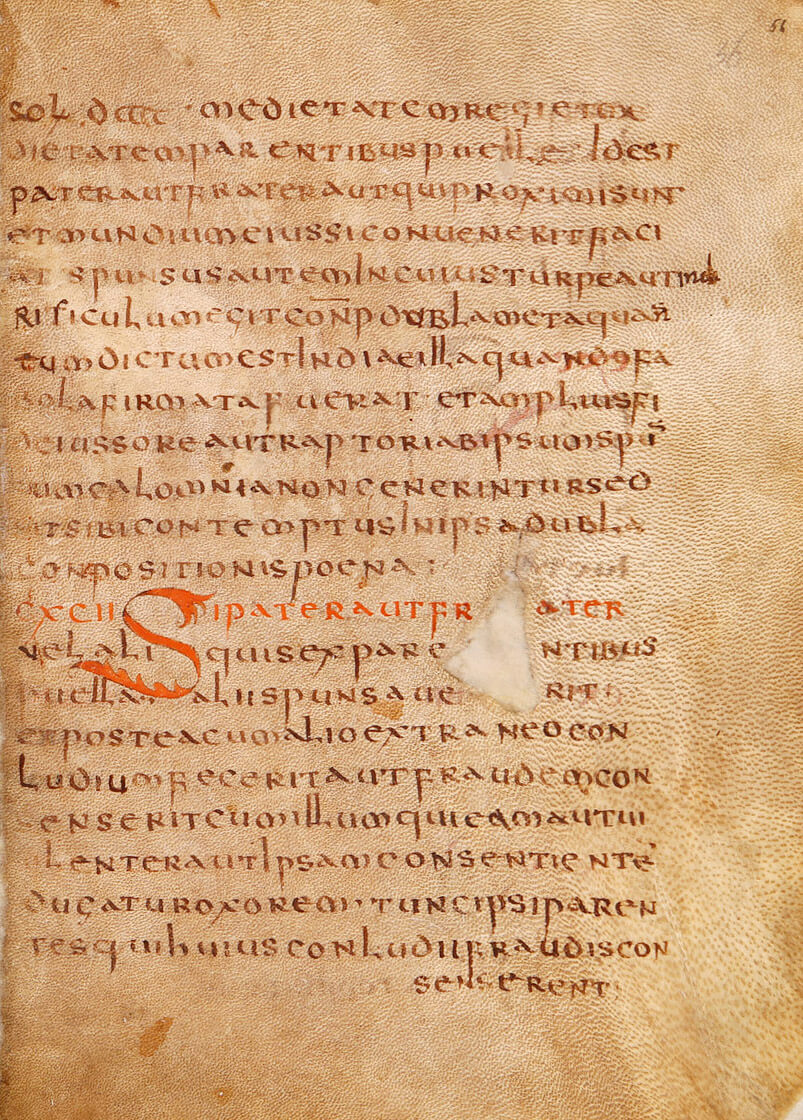 sol dccc medietatem regi et me
dietatem parentibus puelle idest
pater aut frater aut qui proximi sunt
et mundium eius si conuenerit faci
at spunsus autem in cuius turpe aut indi
rificulum egit conp dubla meta quan̄
tum dictum est in diae illa quando fa
bola firmata fuerat et amplius fi
deiussore aut raptori ab ipsum sp
sum calomnia non generintur sed
sit sibi contemptus in ipsa dubla
conpositionis poena :
cxcii Si pater aut frater
vel aliquis ex parentibus
puella alii spunsauerit
et postea cum alio extraneo con
ludium fecerit aut fraudem con
senserit cum illum qui eam aut uio
lenter aut ipsam consentiente
ducat uroxorem tunc ipsi paren
tes qui huius conludii fraudis con
senserent